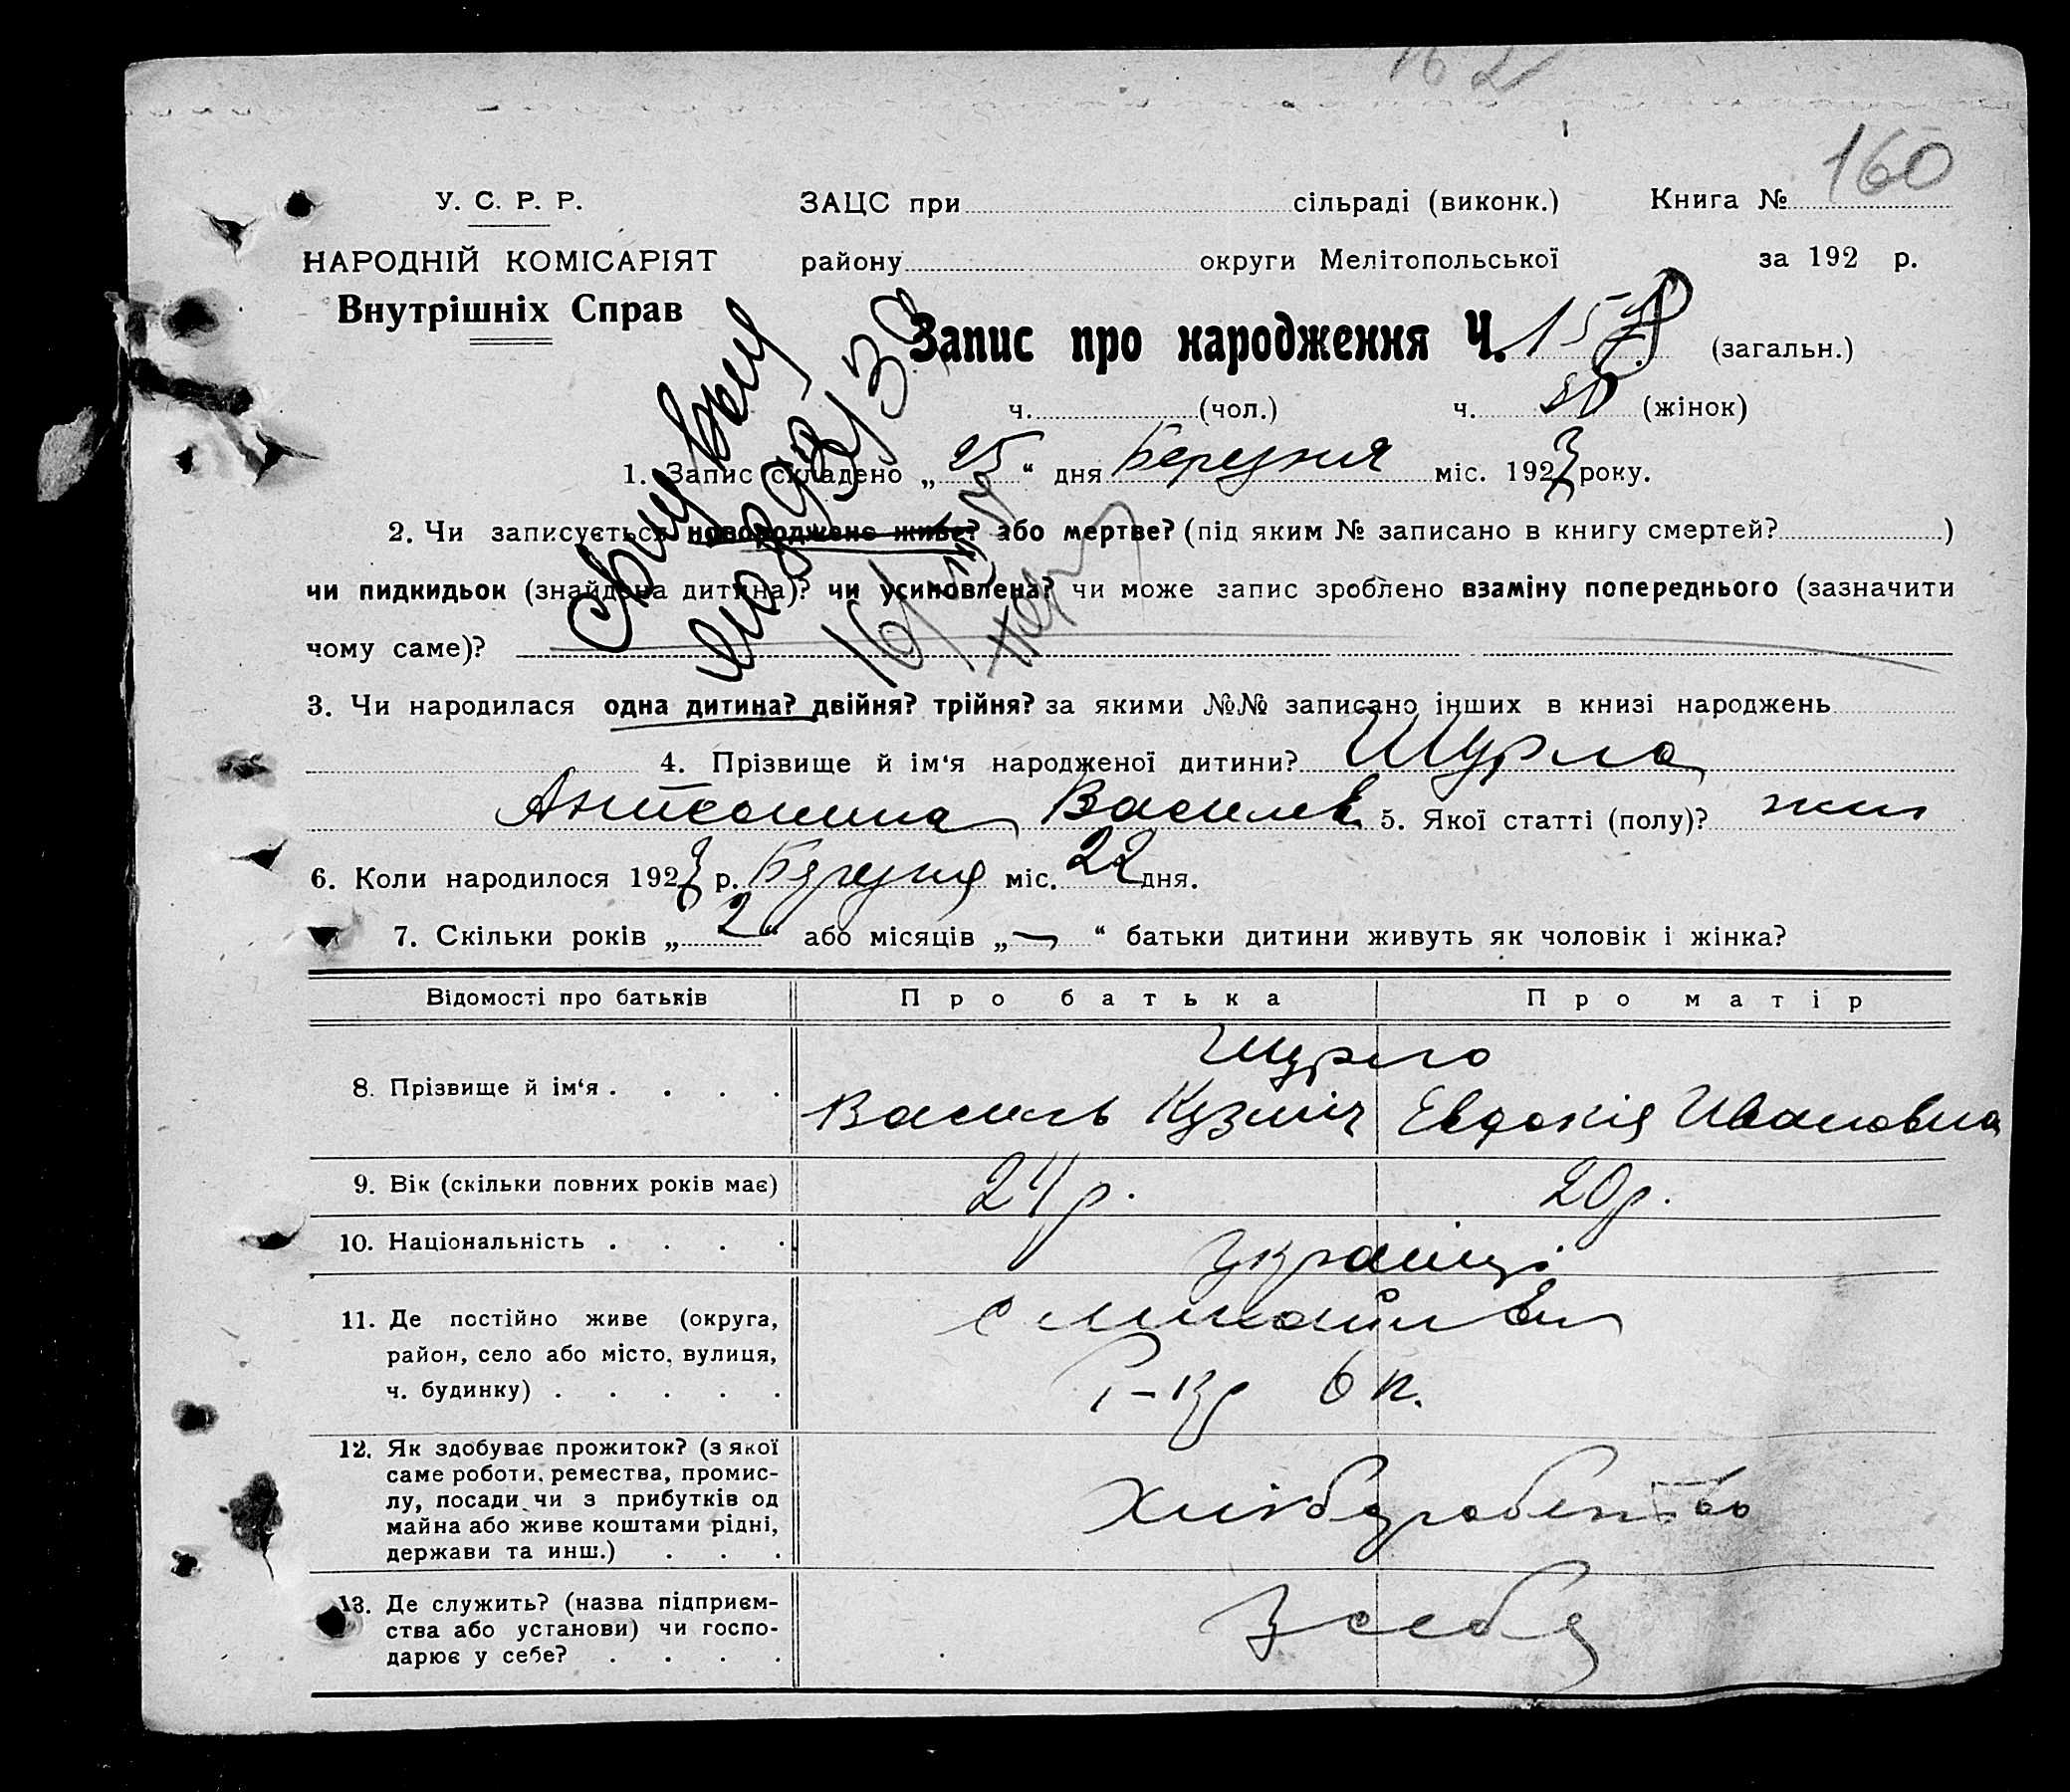 162
160
У. С. Р. Р.
ЗАЦС при сільраді (виконк.) Книга №
НАРОДНІЙ КОМІСАРІЯТ
району округи Мелітопольської за 192 р.
Внутрішніх Справ
Запис про народження Ч. (загальн.)
ч. (чол.) ч. (жінок)
1. Запис складено „25“ дня Березня міс. 1923 року.
2. Чи записується новороджене живе? або мертве? (під яким № записано в книгу смертей? )
чи пидкидьок (знайдена дитина)? чи усиновлена? чи може запис зроблено взаміну попереднього (зазначити
чому саме)?
3. Чи народилася одна дитина? двійня? трійня? за якими №№ записано інших в книзі народжень
4. Прізвище й ім‘я народженої дитини? Шурло
Антонина Василев 5. Якої статті (полу)? жин
6. Коли народилося 1923 р. Березня міс. 22 дня.
7. Скільки років „2“ або місяців „—“ батьки дитини живуть як чоловік і жінка?
Відомості про батьків Про батька Про матір
Шурло
8. Прізвище й ім‘я . . . . Василь Кузміч Евдокія Ивановна
9. Вік (скільки повних років має) 24 р. 20 р.
10. Національність . . . . Українці
11. Де постійно живе (округа,
район, село або місто, вулиця,
ч. будинку) . . . . .
12. Як здобуває прожиток? (з якої
саме роботи, ремества, промис-
лу, посади чи з прибутків од
майна або живе коштами рідні,
держави та инш.) . . .
Хлібуробство
13. Де служить? (назва підприєм-
ства або установи) чи госпо-
дарює у себе? . . . .
У себе